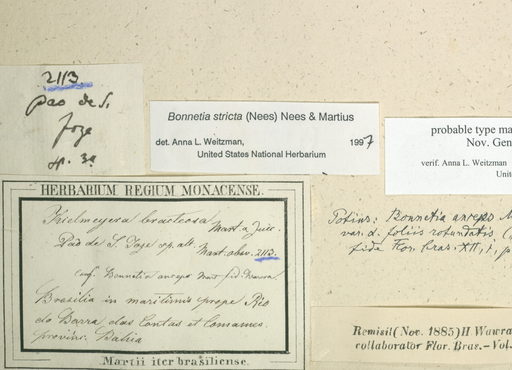 2113.
pao de S.
Joze
Bonnetia stricta (Nees) Nees & Martius
det. Anna L. Weitzman, 1997
United States National Herbarium
probable type ma
Nov. Gen
verif. Anna L. Weitzman
Unit
HERBARIUM REGIUM MONACENSE.
Kielmeyera bracteosa Mart. & Zucc.
Pao de S. Joze sp. alt. Mart. obser. 2113.
conf. Bonnetia anceps Mart. fid. Wawra.
Brasilia in maritimis prope Rio
do Barra das Contas et Comamu.
provinc. Bahia
Martii iter brasiliense.
Potius: Bonnetia anceps M
var. d. foliis rotundatis (
fide Flor. bras. XII, 1, p
Remisit (Nov. 1885) H. Wawra
collaborator Flor. Bras. - Vol.